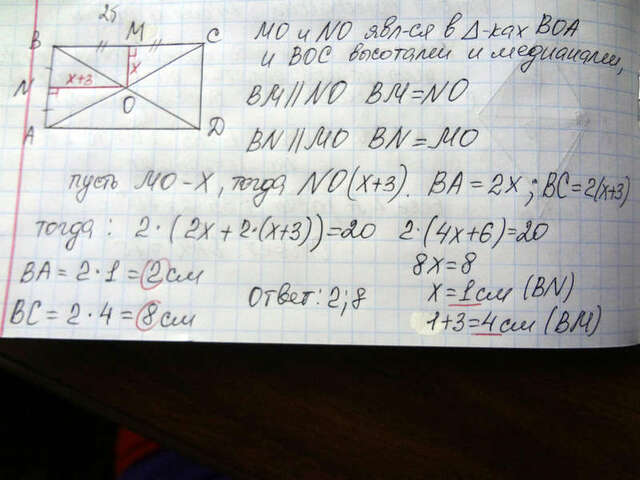 25
B M C
N x+3 x
O
A D
MO и NO явл-ся в Δ-ках BOA
и BOC высотами и медианами,
BM || NO BM = NO
BN || MO BN = MO
пусть MO - x, тогда NO(x+3). BA = 2x; BC = 2(x+3)
тогда: 2·(2x+2·(x+3))=20 2·(4x+6)=20
8x=8
BA = 2·1 = 2 см
x = 1 см (BN)
Ответ: 2; 8
BC = 2·4 = 8 см
1+3=4 см (BM)